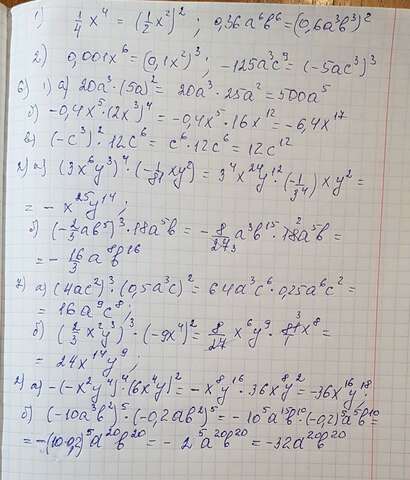 1) 1/4 x⁴ = (1/2 x²)² ; 0,36a⁶b⁶ = (0,6a³b³)²
2) 0,001x⁶ = (0,1x²)³ ; -125a³c⁹ = (-5ac³)³
6) 1) а) 20a³ · (5a)² = 20a³ · 25a² = 500a⁵
б) -0,4x⁵ · (2x³)⁴ = -0,4x⁵ · 16x¹² = -6,4x¹⁷
в) (-c³)² · 12c⁶ = c⁶ · 12c⁶ = 12c¹²
2) а) (3x⁶y³)⁴ · (-1/81 xy²) = 3⁴x²⁴y¹² · (-1/3⁴) xy² =
= -x²⁵y¹⁴ ;
б) (-2/3 ab⁵)³ · 18a⁵b = -8/27₃ a³b¹⁵ · 18² a⁵b =
= -16/3 a⁸b¹⁶
7) а) (4ac²)³ · (0,5a³c)² = 64a³c⁶ · 0,25a⁶c² =
= 16a⁹c⁸ ;
б) (2/3 x²y³)³ · (-9x⁴)² = 8/27 x⁶y⁹ · 81³ x⁸ =
= 24x¹⁴y⁹ ;
2) а) -(-x²y⁴)⁴ · (6x⁴y)² = -x⁸y¹⁶ · 36x⁸y² = -36x¹⁶y¹⁸ ;
б) (-10a³b²)⁵ · (-0,2ab²)⁵ = -10⁵a¹⁵b¹⁰ · (-0,2)⁵a⁵b¹⁰ =
= -(10·0,2)⁵a²⁰b²⁰ = -2⁵a²⁰b²⁰ = -32a²⁰b²⁰